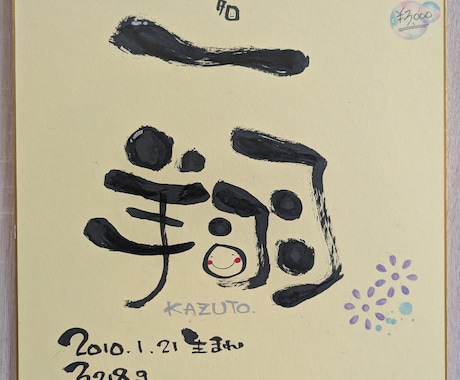 ¥3,000
一
翔
KAZUTO.
2010.1.21 生まれ
3218g